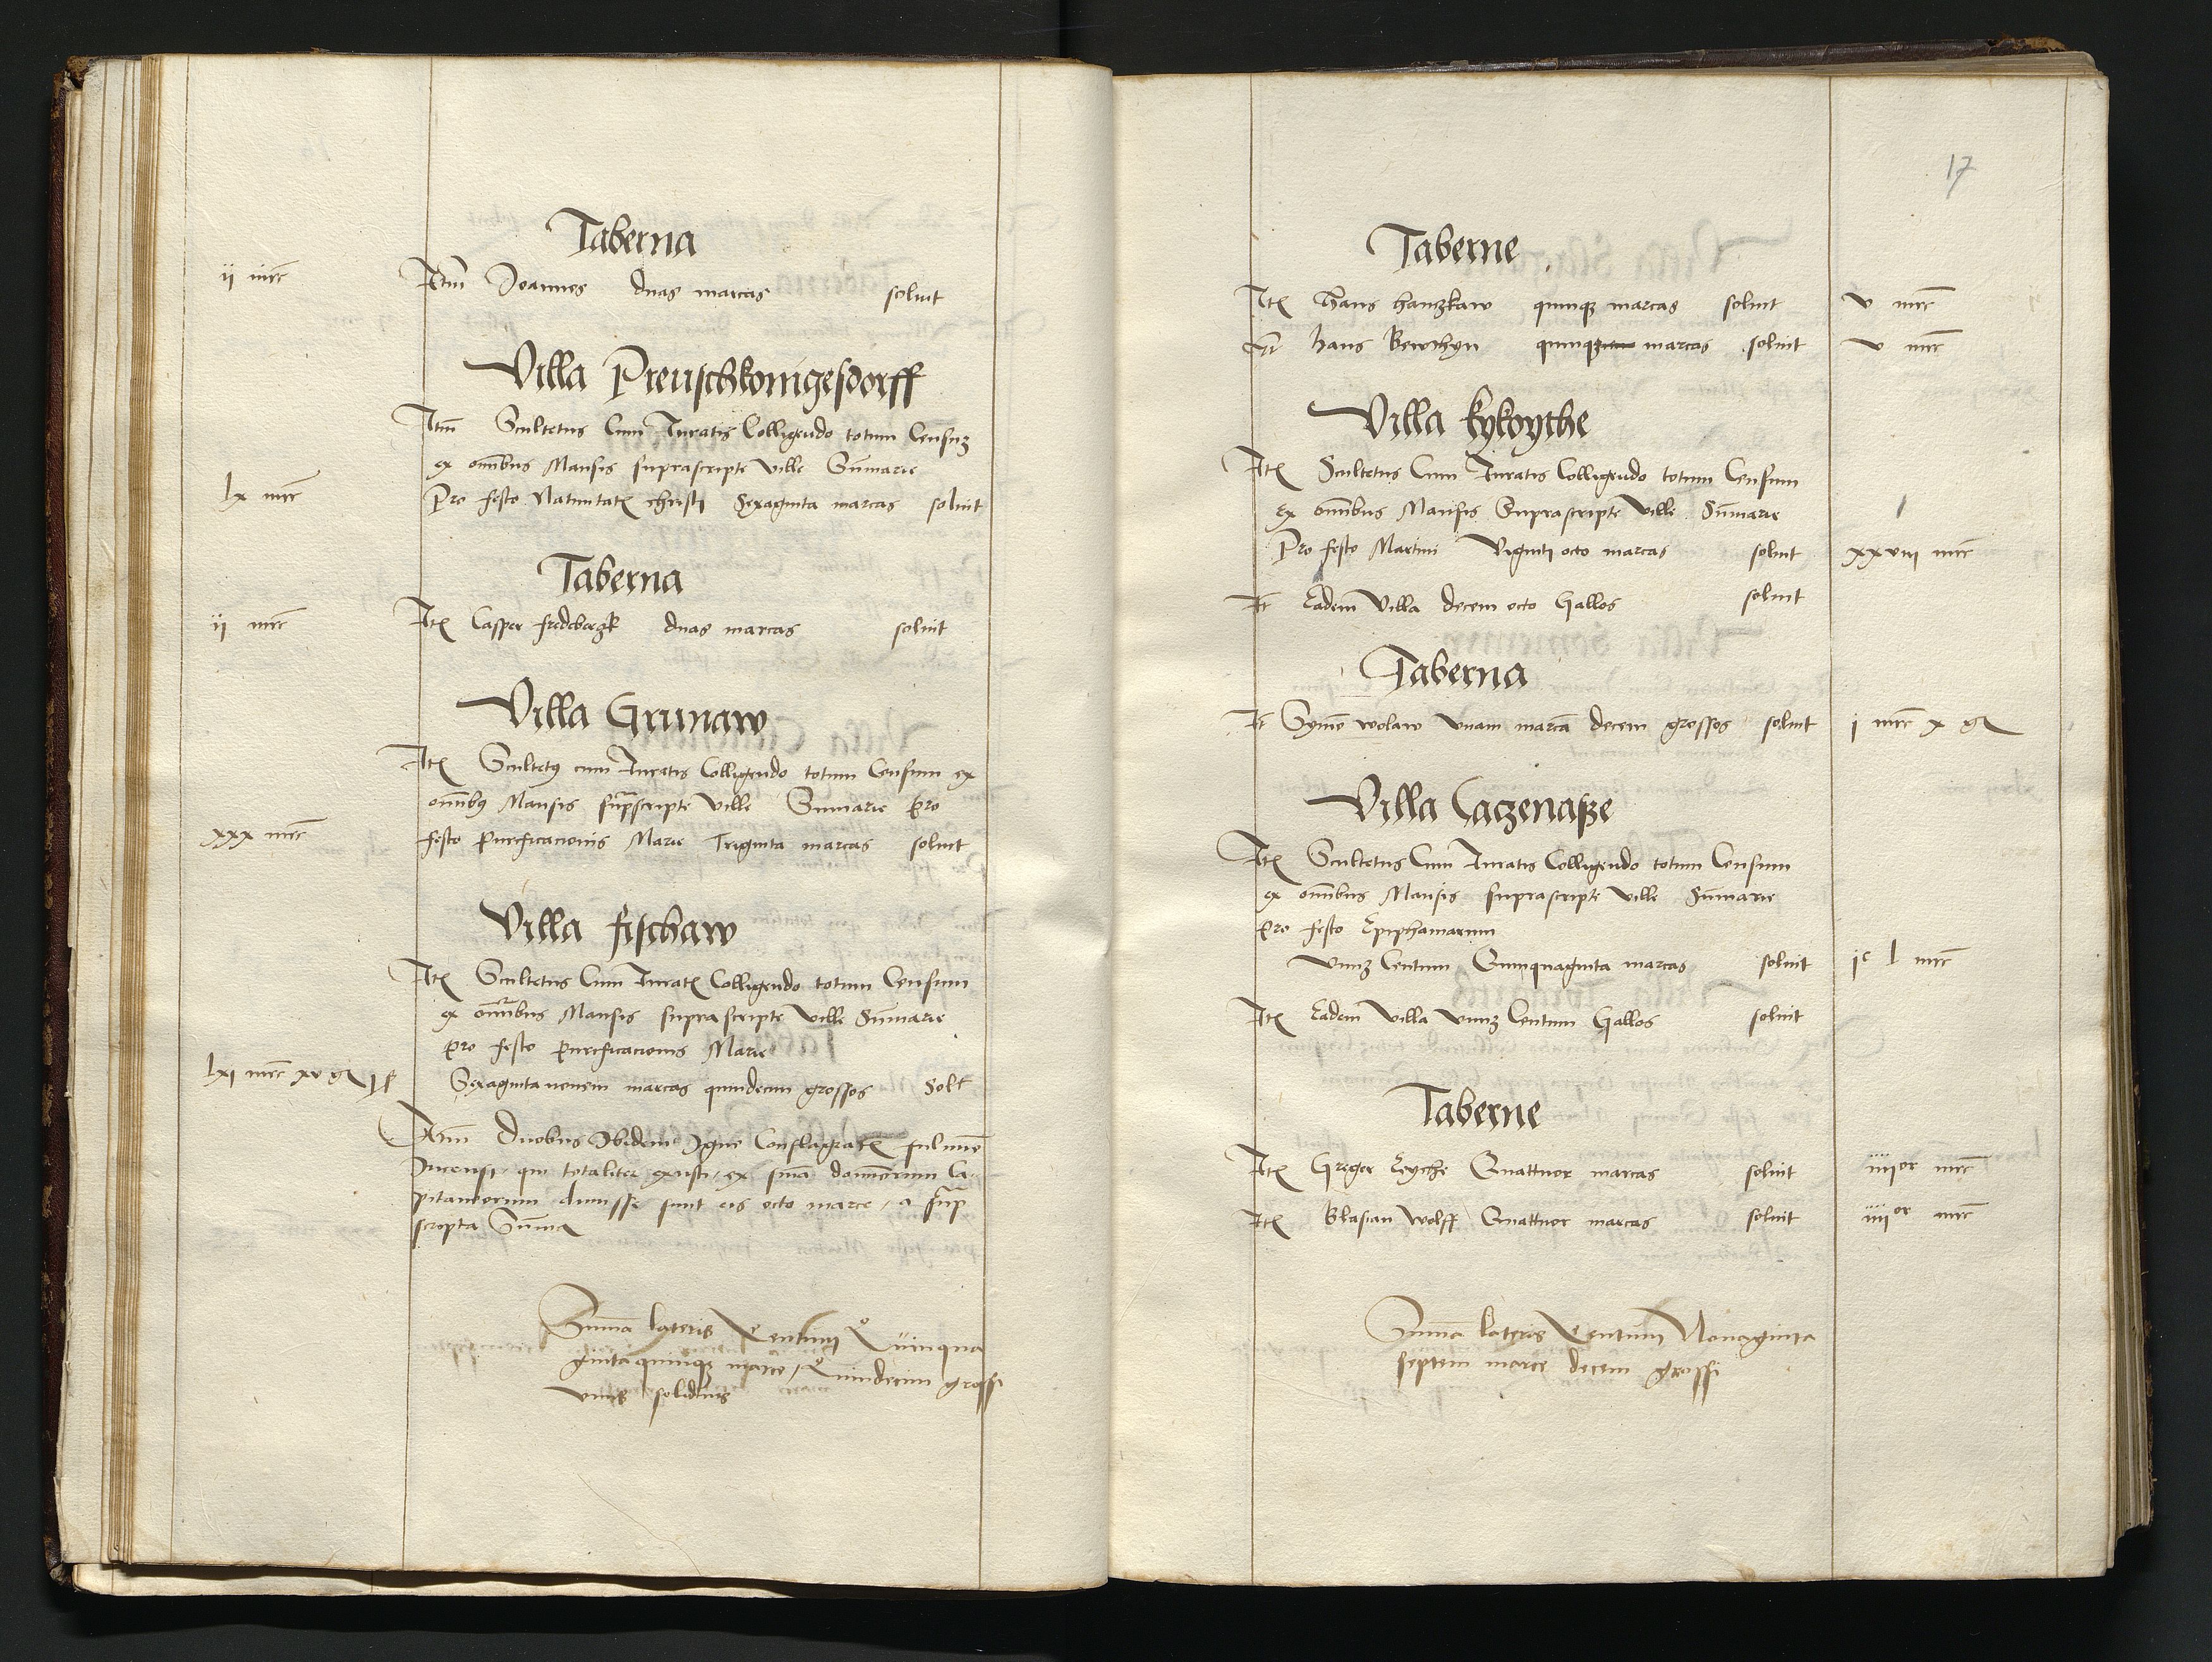 Taberna
ij mrc Itm Joannes duas marcas soluit
Villa Preuschkonigesdorff
Itm Scultetus Cum Juratis Colligendo totum Censuʒ
ex om̄ibus Mansis suprascripte Ville Su͞marie
lx mrc Pro festo Natiuitatꝭ christi Sexaginta marcas soluit
Taberna
ij mrc Itꝭ Casper fredebergk duas marcas soluit
Villa Grunaw
Itꝭ Scultetꝰ cum Juratis Colligendo totum Censum ex
om̄ibꝰ Mansis supͣscripte Ville Sumarie pro
xxx mrc festo purificacionis Marie Triginta marcas soluit
Villa fischaw
Itꝭ Scultetus Cum Juratꝭ Colligendo totum Censum
ex om̄ibus Mansis suprascripte Ville Su͞marie
pro festo purificacionis Marie
lxi mrc xv gꝛ i ß Sexaginta vnem marcas quindecim grossos Solt
Itm Duobus Ibidem Igne Conflagratꝭ fulmīe
Incensi qui totaliter exusti ex sn̄ia dominorum Ca-
pitaneorum dimisse sunt eis octo marce a supͣ
scripta Summa
Sum̄a lateris Centum Quinqua
ginta quinqʒ marce / Quindecim grossi
vnus solidus
17
Taberne
Itꝭ Hans hanzkaw quinqʒ marcas soluit v mrc
It hans Bewthyn quinqʒ marcas soluit v mrc
Villa kykoythe
Itꝭ Scultetus Cum Juratis Colligendo totum Censum
ex om̄ibus Mansis Suprascripte Ville Su͞marie
Pro festo Martini Viginti octo marcas soluit xxviij mrc
It Eadem Villa decem octo Gallos soluit
Taberna
It Symō wolaw Vnam marcā decem grossos soluit j mrc x gꝛ
Villa Caczenaße
Itꝭ Scultetus Cum Juratis Colligendo totum Censum
ex om̄ibus Mansis suprascripte Ville Su͞marie
pro festo Epiphaniarum
Vnuʒ Centum Quinquaginta marcas soluit jᶜ l mrc
Itꝭ Eadem Villa Vnuʒ Centum Gallos soluit
Taberne
Itꝭ Greger Czyche Quattuor marcas soluit iiijor mrc
Itꝭ Blasian Wolff Quattuor marcas soluit iiijor mrc
Sum̄a lateris Centum Nonaginta
septem marce decem grossi